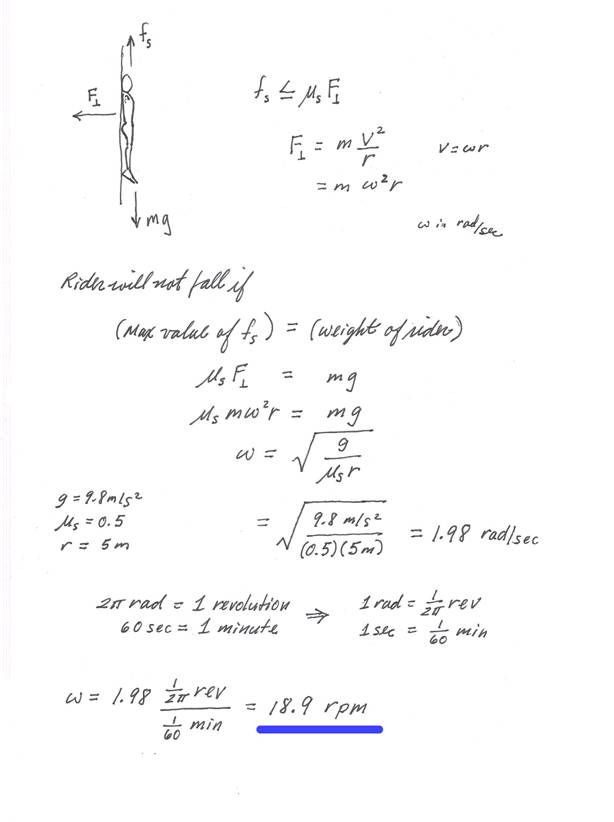 fₛ
F⊥
mg
fₛ ≤ μₛ F⊥
F⊥ = m V²/r V = ωr
= m ω²r
ω in rad/sec
Rider will not fall if
(Max value of fₛ) = (weight of rider)
μₛ F⊥ = mg
μₛ mω²r = mg
ω = √(g/μₛr)
g = 9.8 m/s²
μₛ = 0.5
r = 5m
= √(9.8 m/s²/(0.5)(5m)) = 1.98 rad/sec
2π rad = 1 revolution ⇒ 1 rad = 1/2π rev
60 sec = 1 minute 1 sec = 1/60 min
ω = 1.98 (1/2π rev)/(1/60 min) = 18.9 rpm